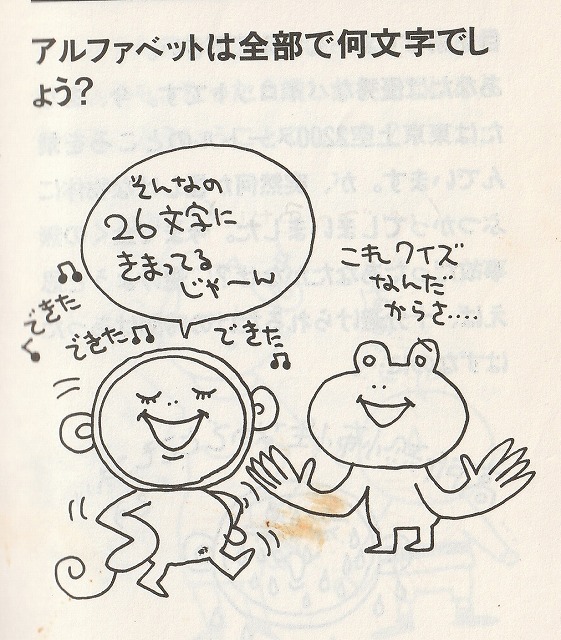 アルファベットは全部で何文字でし
ょう？
そんなの
26文字に
きまってる
じゃーん
これクイズ
なんだ
からさ…．
できた
できた
できた